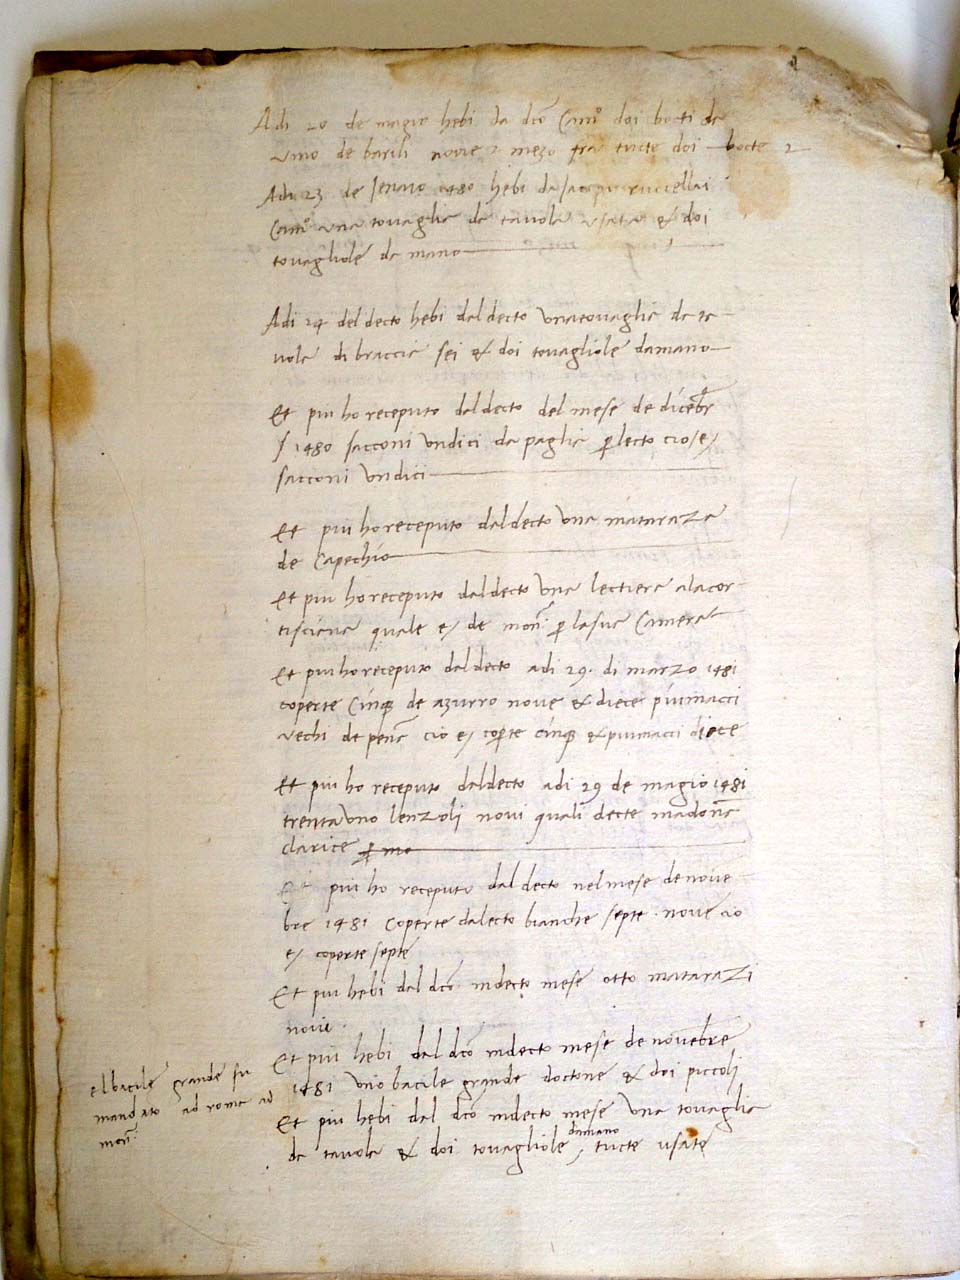 Adi 20 de magio hebi da dco Camo doi bocti de
vino de barili nove 2 mezo fra tucte doi bocte 2
Adi 23 de Jenaio 1480 hebi da Jacopo rucellai
Camo una tovaglia de tavola usata & doi
tovagliole de mano
Adi 24 del decto hebi dal decto una tovaglia de ta
vola di braccia sei & doi tovagliole da mano
Et piu ho receputo dal decto del mese de dicebr
1480 sacconi undici da paglia p lecto cio e
sacconi undici
Et piu ho receputo dal decto una mataraza
de Capechio
Et piu ho receputo dal decto una lectiera ala cor
tisciana quale e de mon p la sua Camera
Et piu ho receputo dal decto adi 29 di marzo 1481
coperte Cinq de azurro nove & diece piumacci
vechi de pena cio e coperte cinq & piumacci diece
Et piu ho receputo dal decto adi 29 de magio 1481
trenta uno lenzoli novi quali decte madona
clarice p me
Et piu ho receputo dal decto nel mese de nove
bre 1481 coperte da lecto bianche septe nove cio
e coperte septe
Et piu hebi dal dco in decto mese otto matarazi
novi
Et piu hebi dal dco in decto mese de novebre
1481 uno bacile grande doctone & doi piccoli
el bacile grande fu
mandato ad roma ad
mon
Et piu hebi dal dco in decto mese una tovaglia
da tavola & doi tovagliole da mano tucte usate